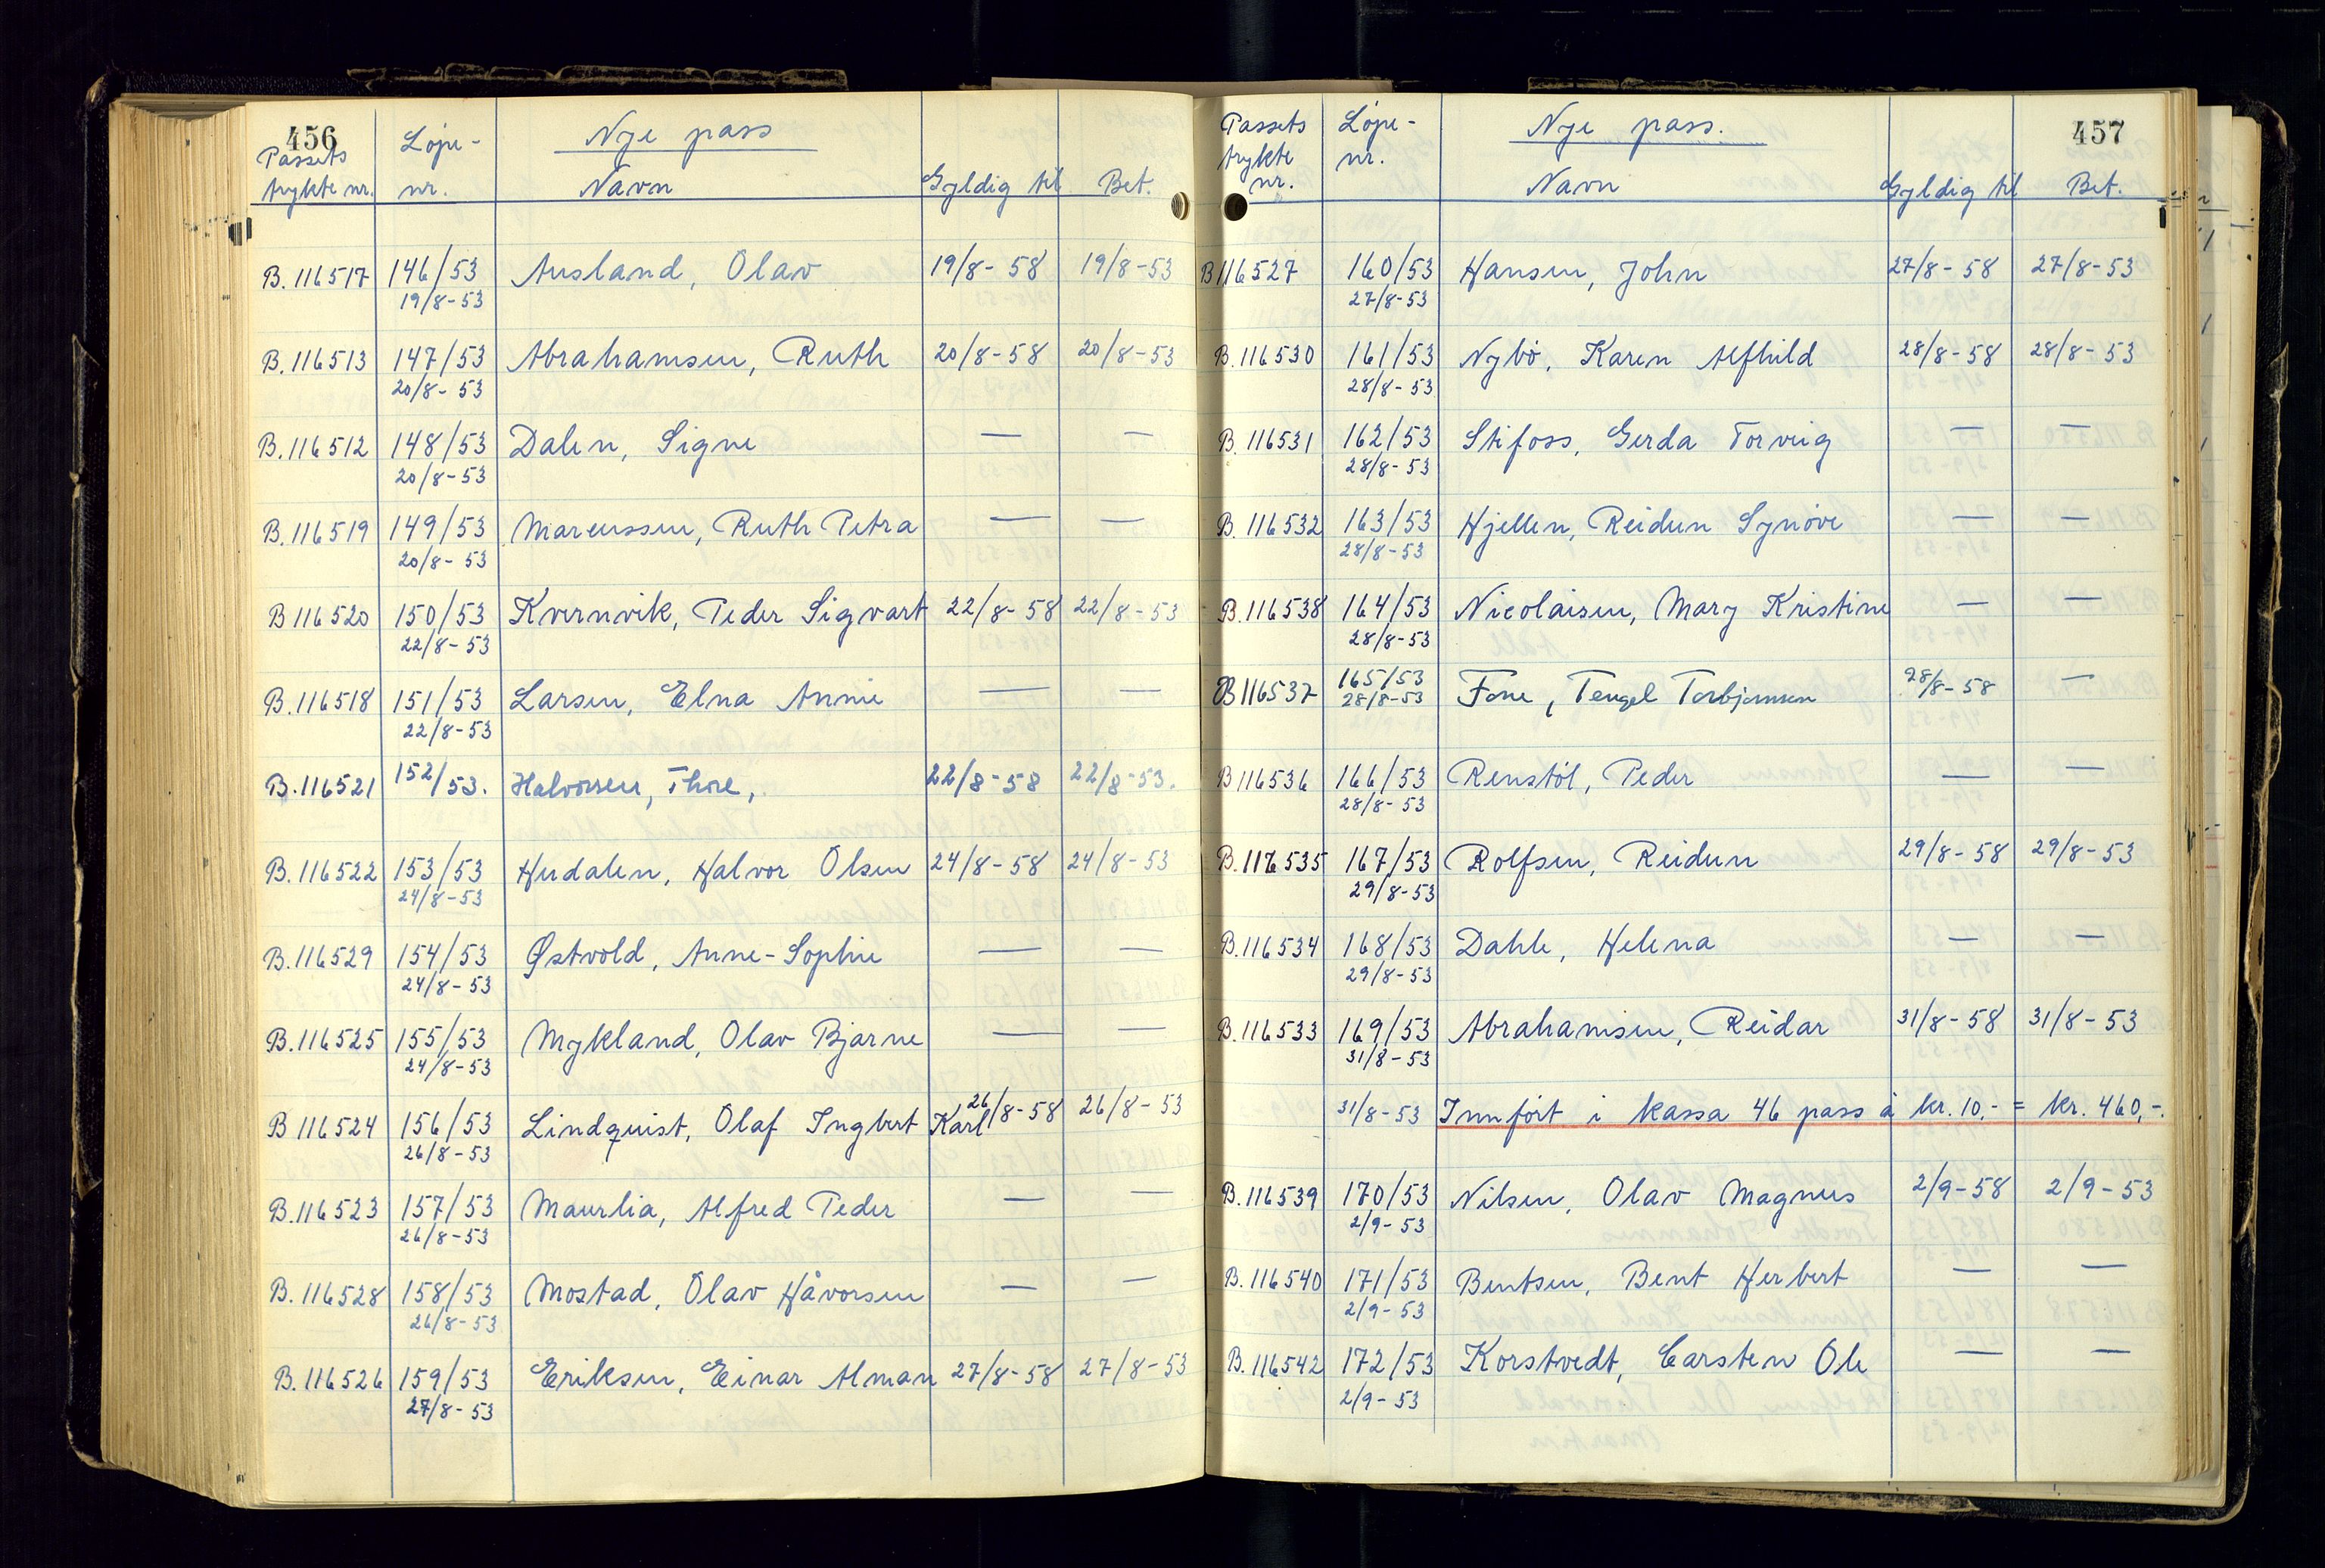 456
Nye pass
Passets trykte nr. Löpe-nr. Navn Gyldig til Bet.
B. 116517 146/53 Ausland, Olav 19/8-58 19/8-53
19/8-53
B. 116513 147/53 Abrahamsen, Ruth 20/8-58 20/8-53
20/8-53
B. 116512 148/53 Dalen, Signe — —
20/8-53
B. 116519 149/53 Marcussen, Ruth Petra — —
20/8-53
B 116520 150/53 Kvernvik, Peder Sigvart 22/8-58 22/8-53
22/8-53
B. 116518 151/53 Larsen, Elna Annie — —
22/8-53
B. 116521 152/53. Halvorsen, Thore, 22/8-58 22/8-53.
B. 116522 153/53 Hudalen, Halvor Olsen 24/8-58 24/8-53
24/8-53
B. 116529 154/53 Østvold, Anne-Sophie — —
24/8-53
B. 116525 155/53 Mykland, Olav Bjarne — —
24/8-53
B 116524 156/53 Lindquist, Olaf Ingbert Karl 26/8-58 26/8-53
26/8-53
B. 116523 157/53 Maurlia, Alfred Peder — —
26/8-53
B. 116528 158/53 Mostad, Olav Håvorsen — —
26/8-53
B. 116526 159/53 Eriksen, Einar Alman 27/8-58 27/8-53
27/8-53
457
Nye pass.
Passets trykte nr. Löpe-nr. Navn Gyldig til Bet.
B 116527 160/53 Hansen, John 27/8-58 27/8-53
27/8-53
B. 116530 161/53 Nybö, Karen Alfhild 28/8-58 28/8-53
28/8-53
B. 116531 162/53 Stifoss, Gerda Torveig — —
28/8-53
B. 116532 163/53 Hjellen, Reidun Synöve — —
28/8-53
B. 116538 164/53 Nicolaisen, Mary Kristine — —
28/8-53
B 116537 165/53 Fone, Tengel Torbjørnsen 28/8-58 —
28/8-53
B 116536 166/53 Renstöl, Peder — —
28/8-53
B. 116535 167/53 Rolfsen, Reidun 29/8-58 29/8-53
29/8-53
B. 116534 168/53 Dahle, Helena — —
29/8-53
B. 116533 169/53 Abrahamsen, Reidar 31/8-58 31/8-53
31/8-53
31/8-53 Innfört i kassa 46 pass à kr. 10,- = kr. 460,-.
B. 116539 170/53 Nilsen, Olav Magnus 2/9-58 2/9-53
2/9-53
B. 116540 171/53 Bentsen, Bent Herbert — —
2/9-53
B. 116542 172/53 Korstvedt, Carsten Ole — —
2/9-53